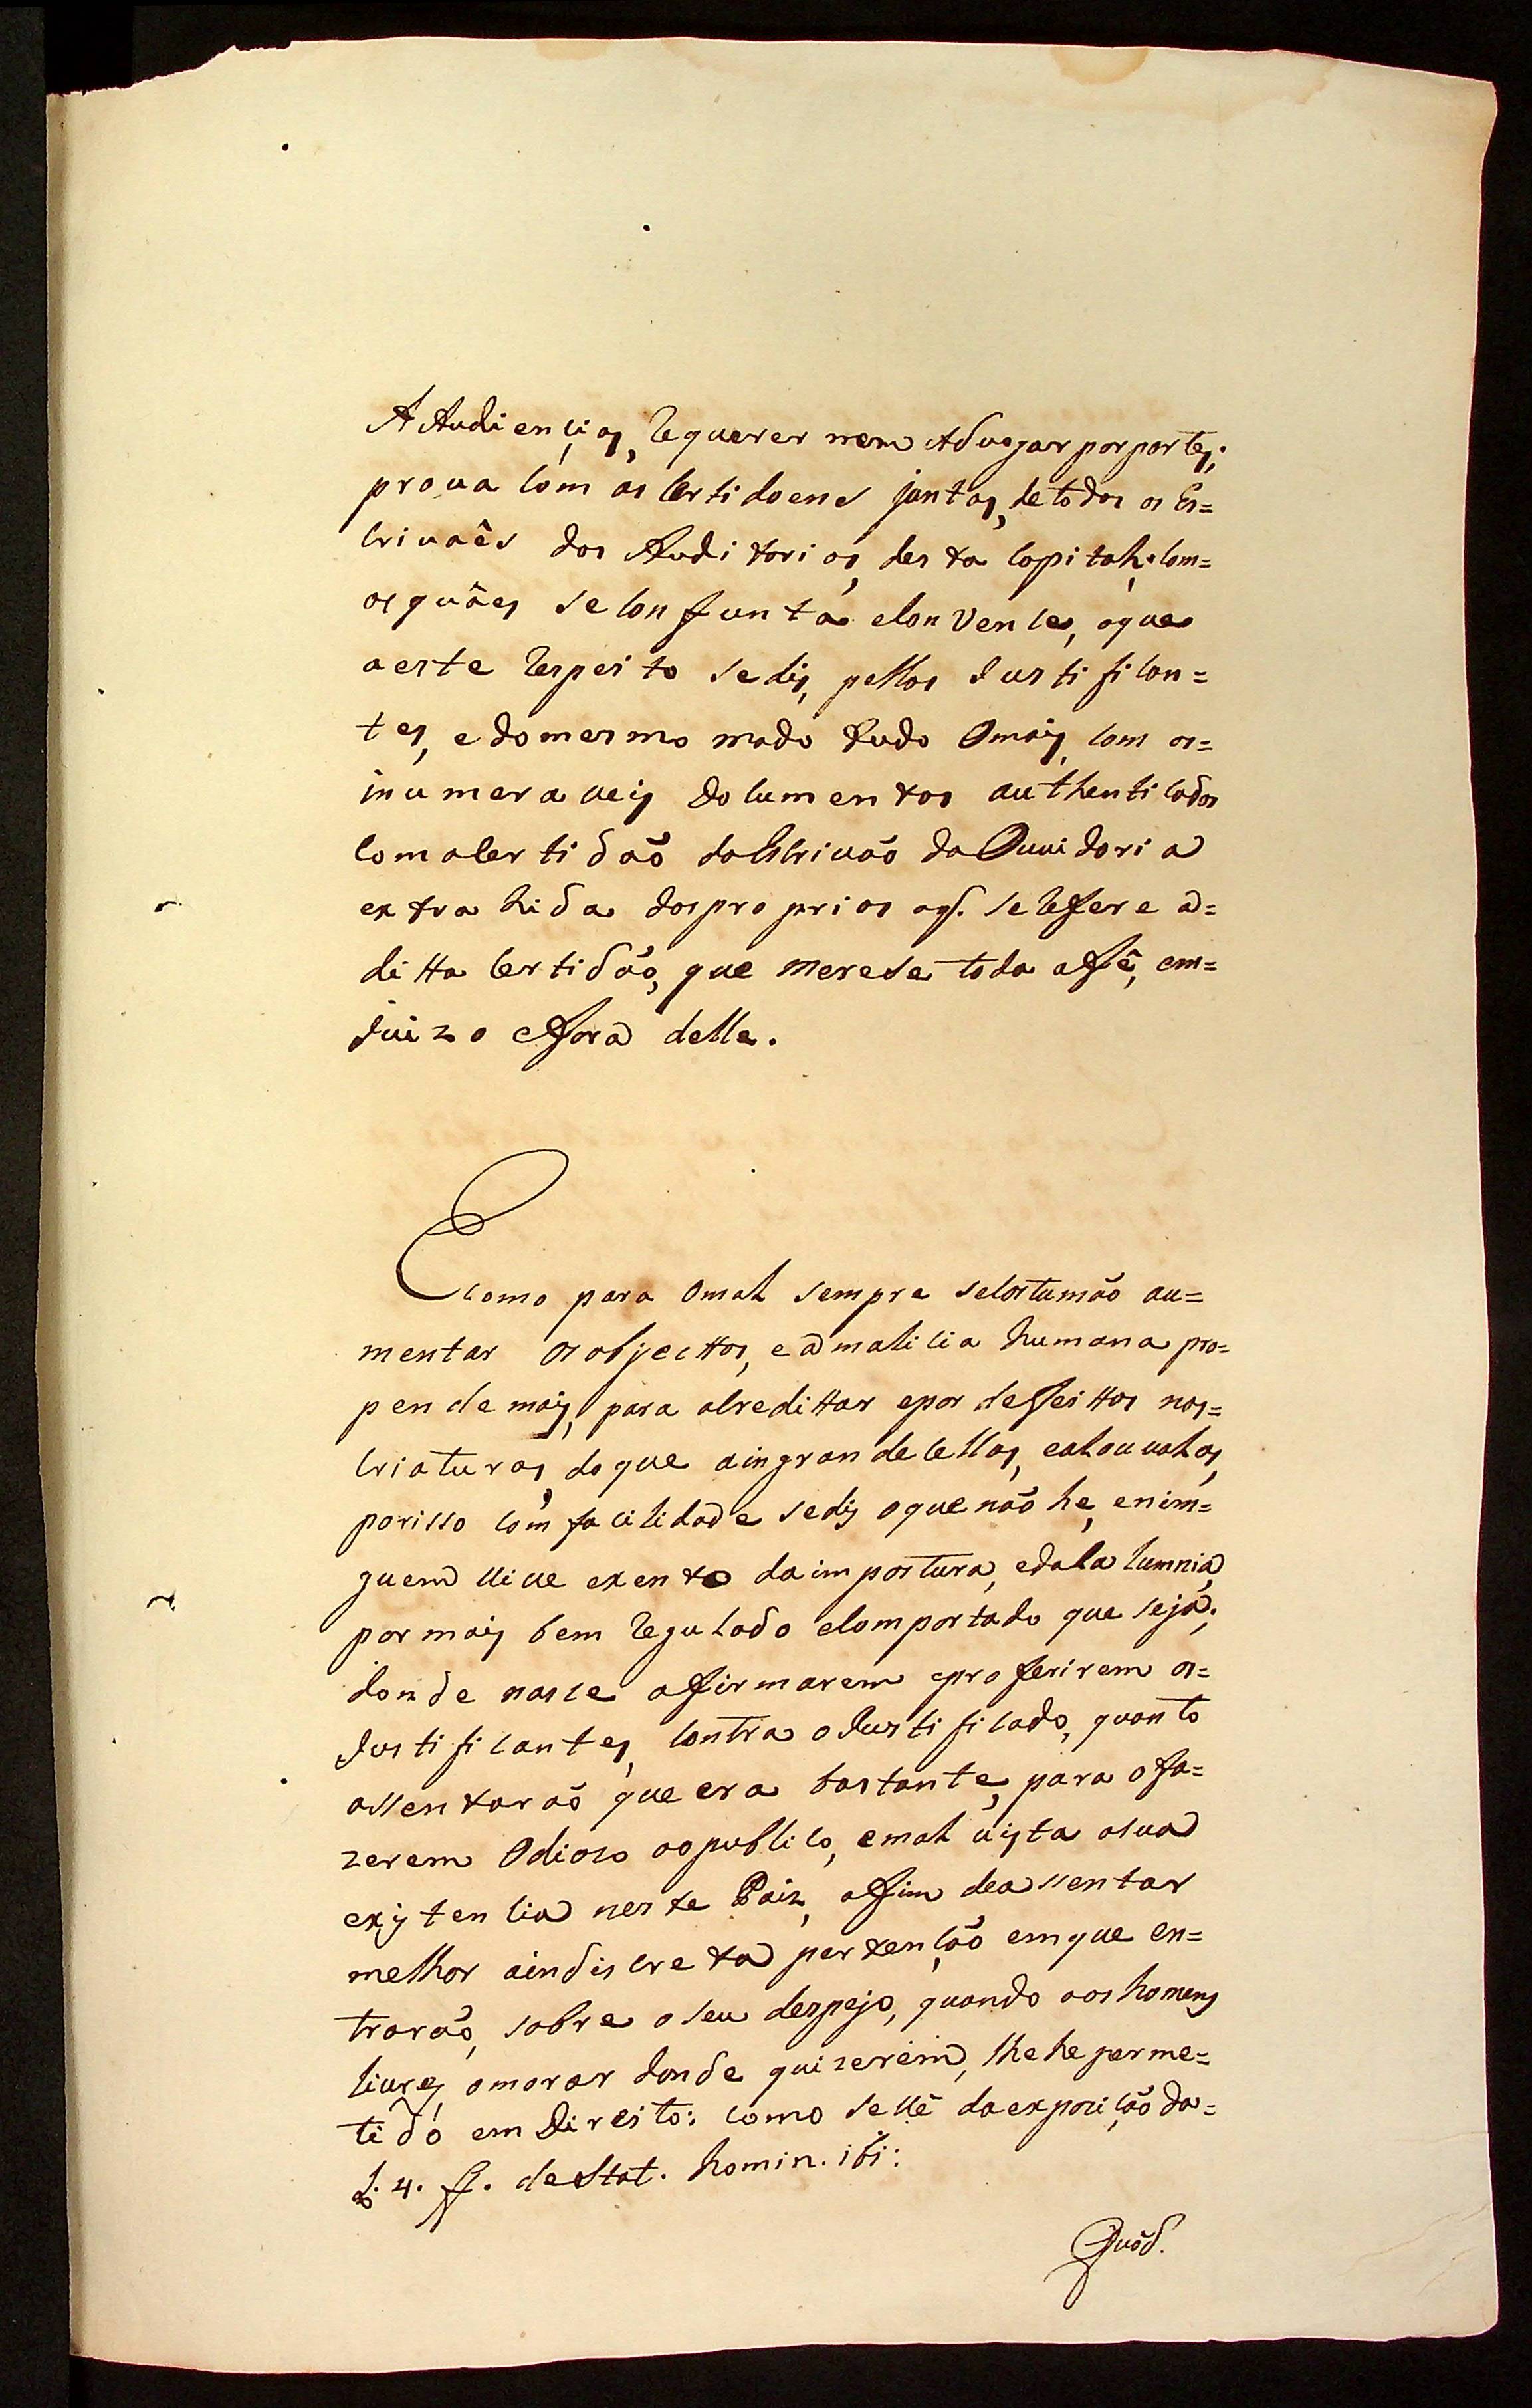 A Audiencias, Requerer nem Advogar por partes;
prova com as Certidoens juntas, de todos os Es=
crivaẽs dos Auditorios, desta Capital: com=
as quaes se confunta e convence, o que
a este Respeito se dis, pellos Justifican=
tes, e do mesmo modo tudo O mais, com os=
inumeraveis documentos authenticados
com a Certidaõ do Escrivaõ da Ouvidoria
extrahida dos proprios a q. se Refere a=
ditta Certidaõ, que merese toda a fé, em=
Juizo e fora delle.
E como para O mal sempre se costumaõ au=
mentar os objecttos, e a malicia humana pro=
pende mais, para acredittar e por deffeittos nas=
Criaturas, do que a ingrandecellas, e a louvalas,
por isso com facilidade se dis o que naõ he, e nim=
guem vive exento da impostura, e da Calumnia,
por mais bem Regulado e Comportado que seja;
donde nasce afirmarem e proferirem os=
Justificantes, contra o Justificado, quanto
assentaraõ que era bastante, para o fa=
zerem Odioso ao publico, e mal vista a sua
existencia neste Paiz, afim de assentar
melhor a indiscreta pertençaõ em que en=
traraõ, sobre o seu despejo, quando aos homens
livres, o morar donde quizerem, lhe he perme=
tido em Direito: como se vê da expoziçaõ da=
L. 4. ff. de Stat. homin. ibi:
Quód.